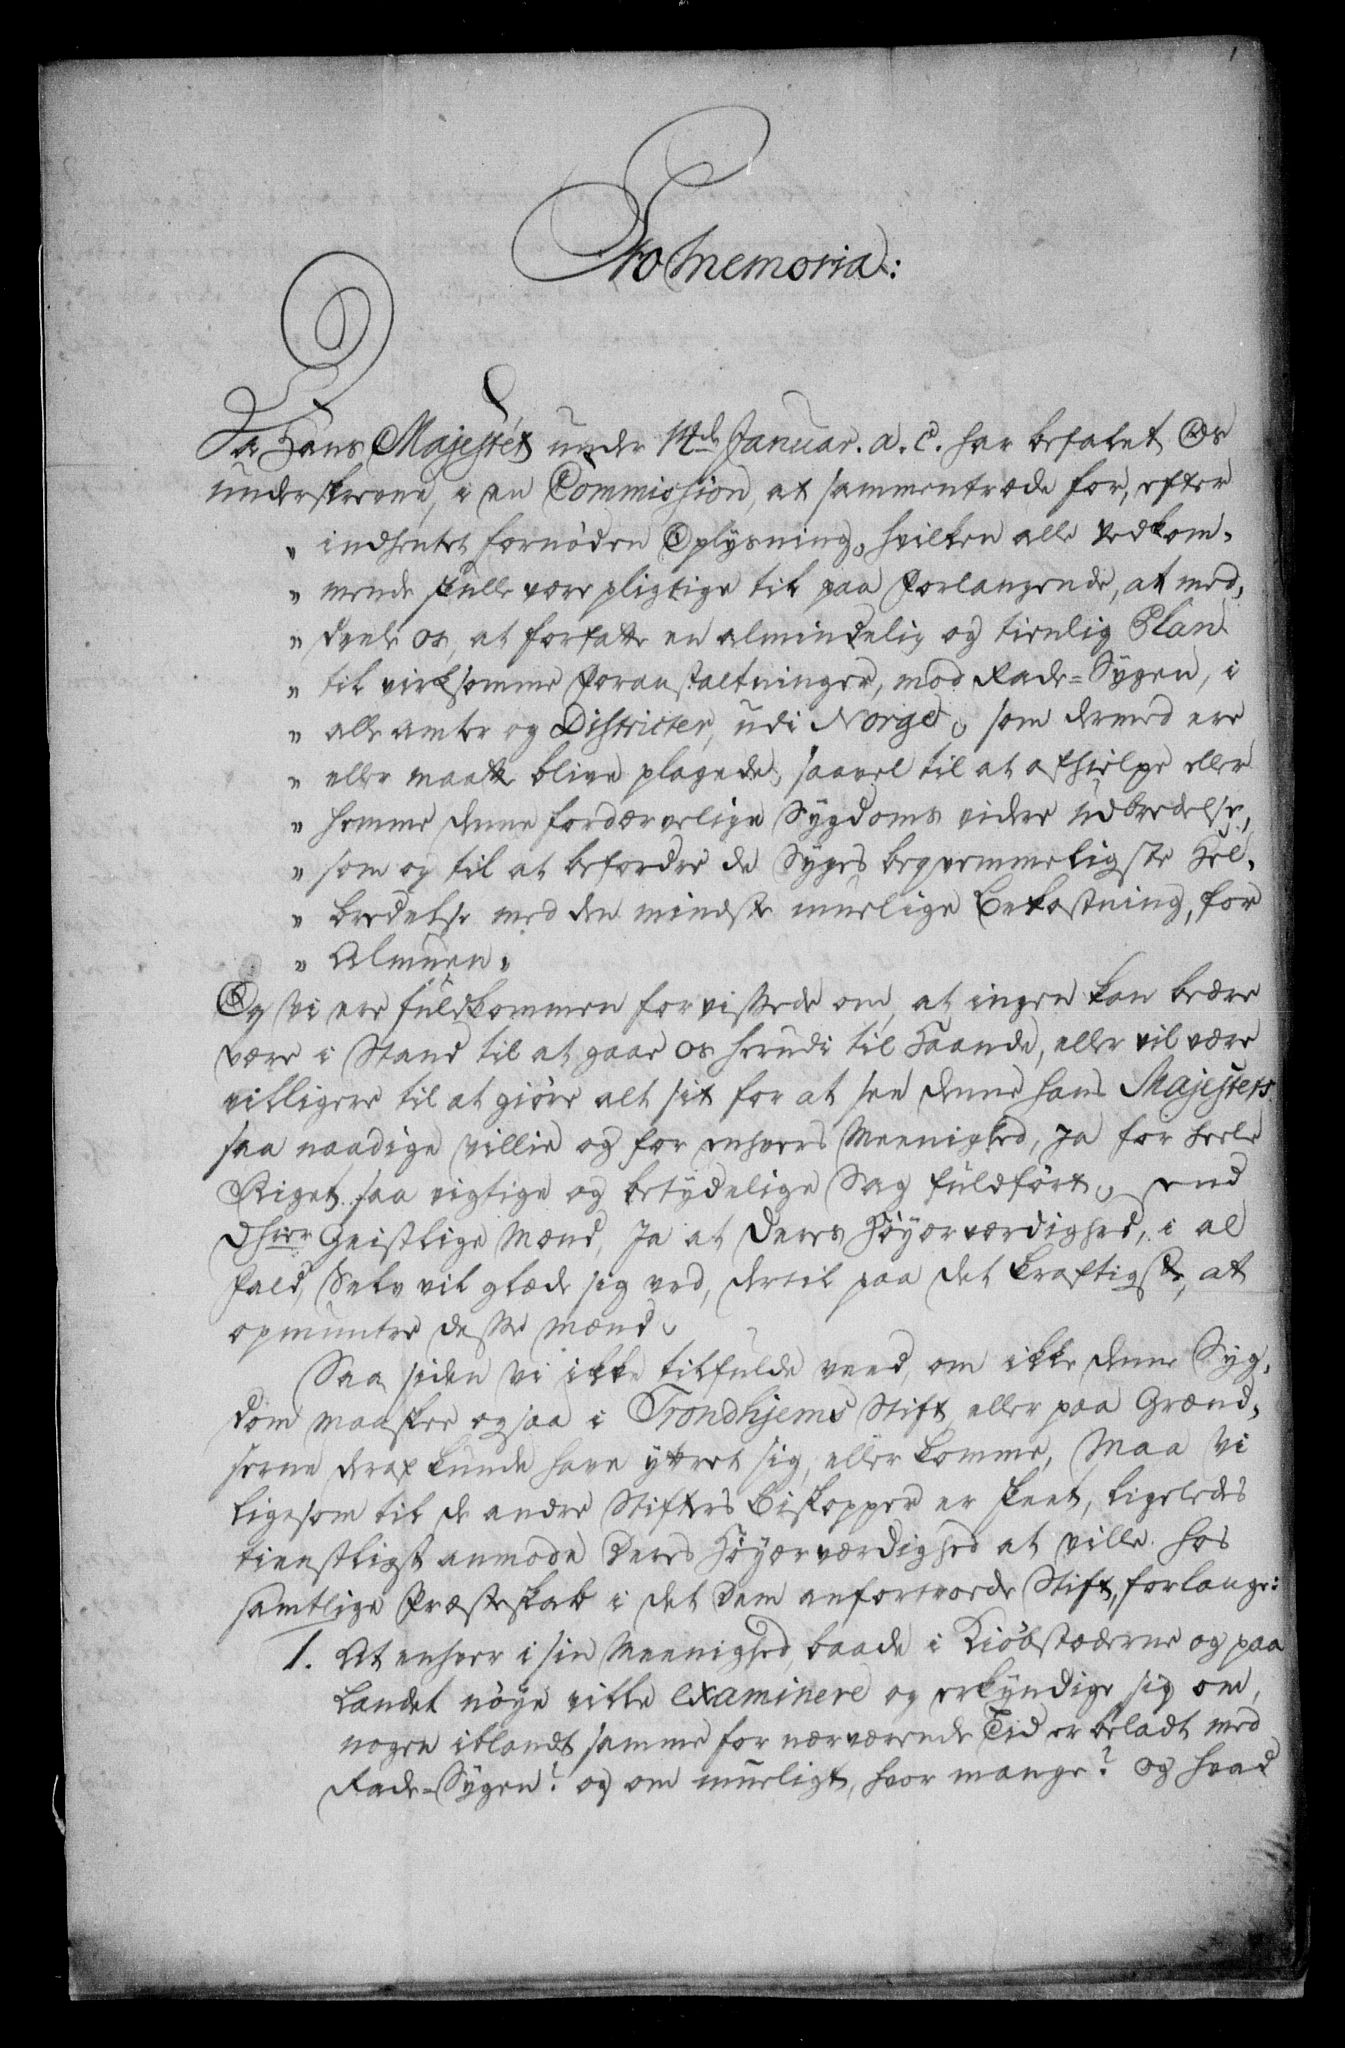 1
Pro Memoria:
Da Hans Majestet under 14de Januar. a. c. har befalet Os
underskrevne, i en Commission, at sammentræde for, efter
„ indhentet fornøden Oplysning, hvilken alle Vedkom-
„ mende skulle være pligtige til paa Forlangende, at med-
„ deele os, at forfatte en almindelig og tienlig Plan
„ til virksomme Foranstaltninger, mod Rade-Sygen, i
„ alle Amter og Districter, udi Norge, som dermed ere
„ eller maatte blive plagede, saavel til at afhielpe eller
„ hemme denne fordærvelige Sygdoms videre Udbredelse,
„ som og til at befordre de Syges beqvemmeligste Hel-
„ bredelse med den mindste muelige Bekostning, for
„ Almuen„
Og Vi ere fuldkommen forvissede om, at ingen kan bedre
være i Stand til at gaae os herudi til Haande, eller vil være
villigere til at giøre alt sit for at see denne hans Majestets
saa naadige Villie og for enhvers Meenighed, Ja for heele
Riget saa vigtige og betydelige Sag fuldført, end
Dhrr Geistlige Mænd, Ja at Deres Høyærværdighed, i al
Fald, Selv vil glæde sig ved, dertil paa det kraftigste, at
opmuntre desse Mænd.
Saa siden Vi ikke tilfulde veed, om ikke denne Syg-
dom maaskee ogsaa i Trondhjems Stift eller paa Grænd-
serne deraf kunde have yttret sig, eller komme, Maa Vi
ligesom til de andre Stifters Biskopper er skeet, ligeledes
tienstligst anmode Deres Høyærværdighed at ville hos
samtlige Præsteskab i det Dem anfortroede Stift, forlange:
1. At enhver i sin Meenighed, baade i Kiøbstæderne og paa
Landet nøye ville examinere og erkyndige sig om,
nogen iblandt samme for nærværende Tid er beladt med
Rade-Sygen? og om mueligt, hvor mange? og hvad